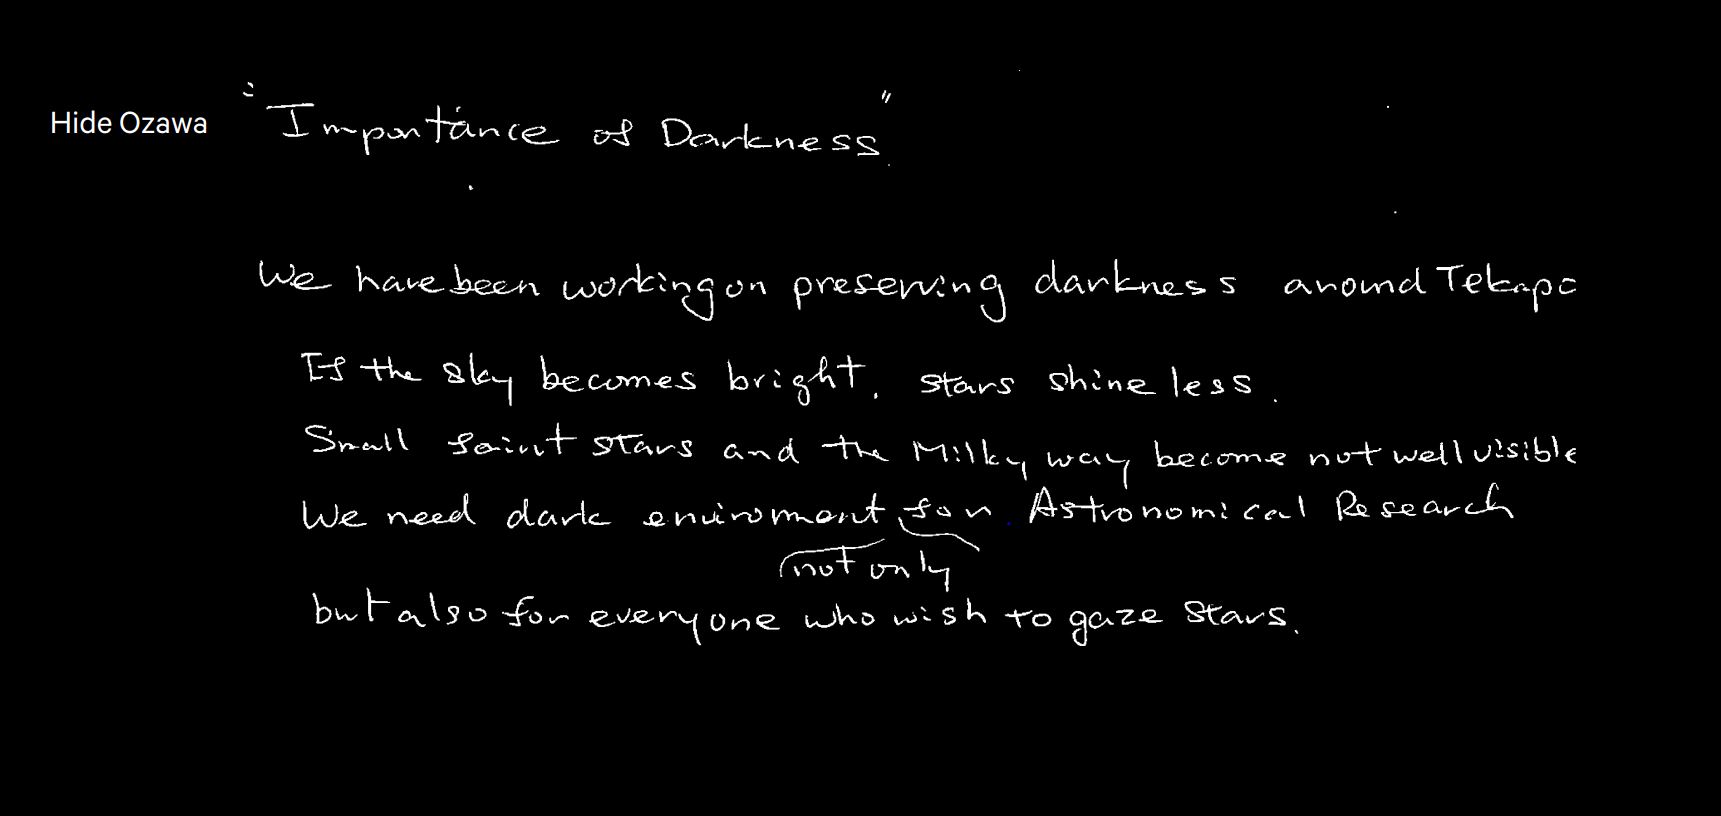 Hide Ozawa
"Importance of Darkness"
We have been working on preserving darkness around Tekapo
If the sky becomes bright, stars shine less.
Small faint stars and the Milky way become not well visible
We need dark enviroment for Astronomical Research
not only
but also for everyone who wish to gaze stars.